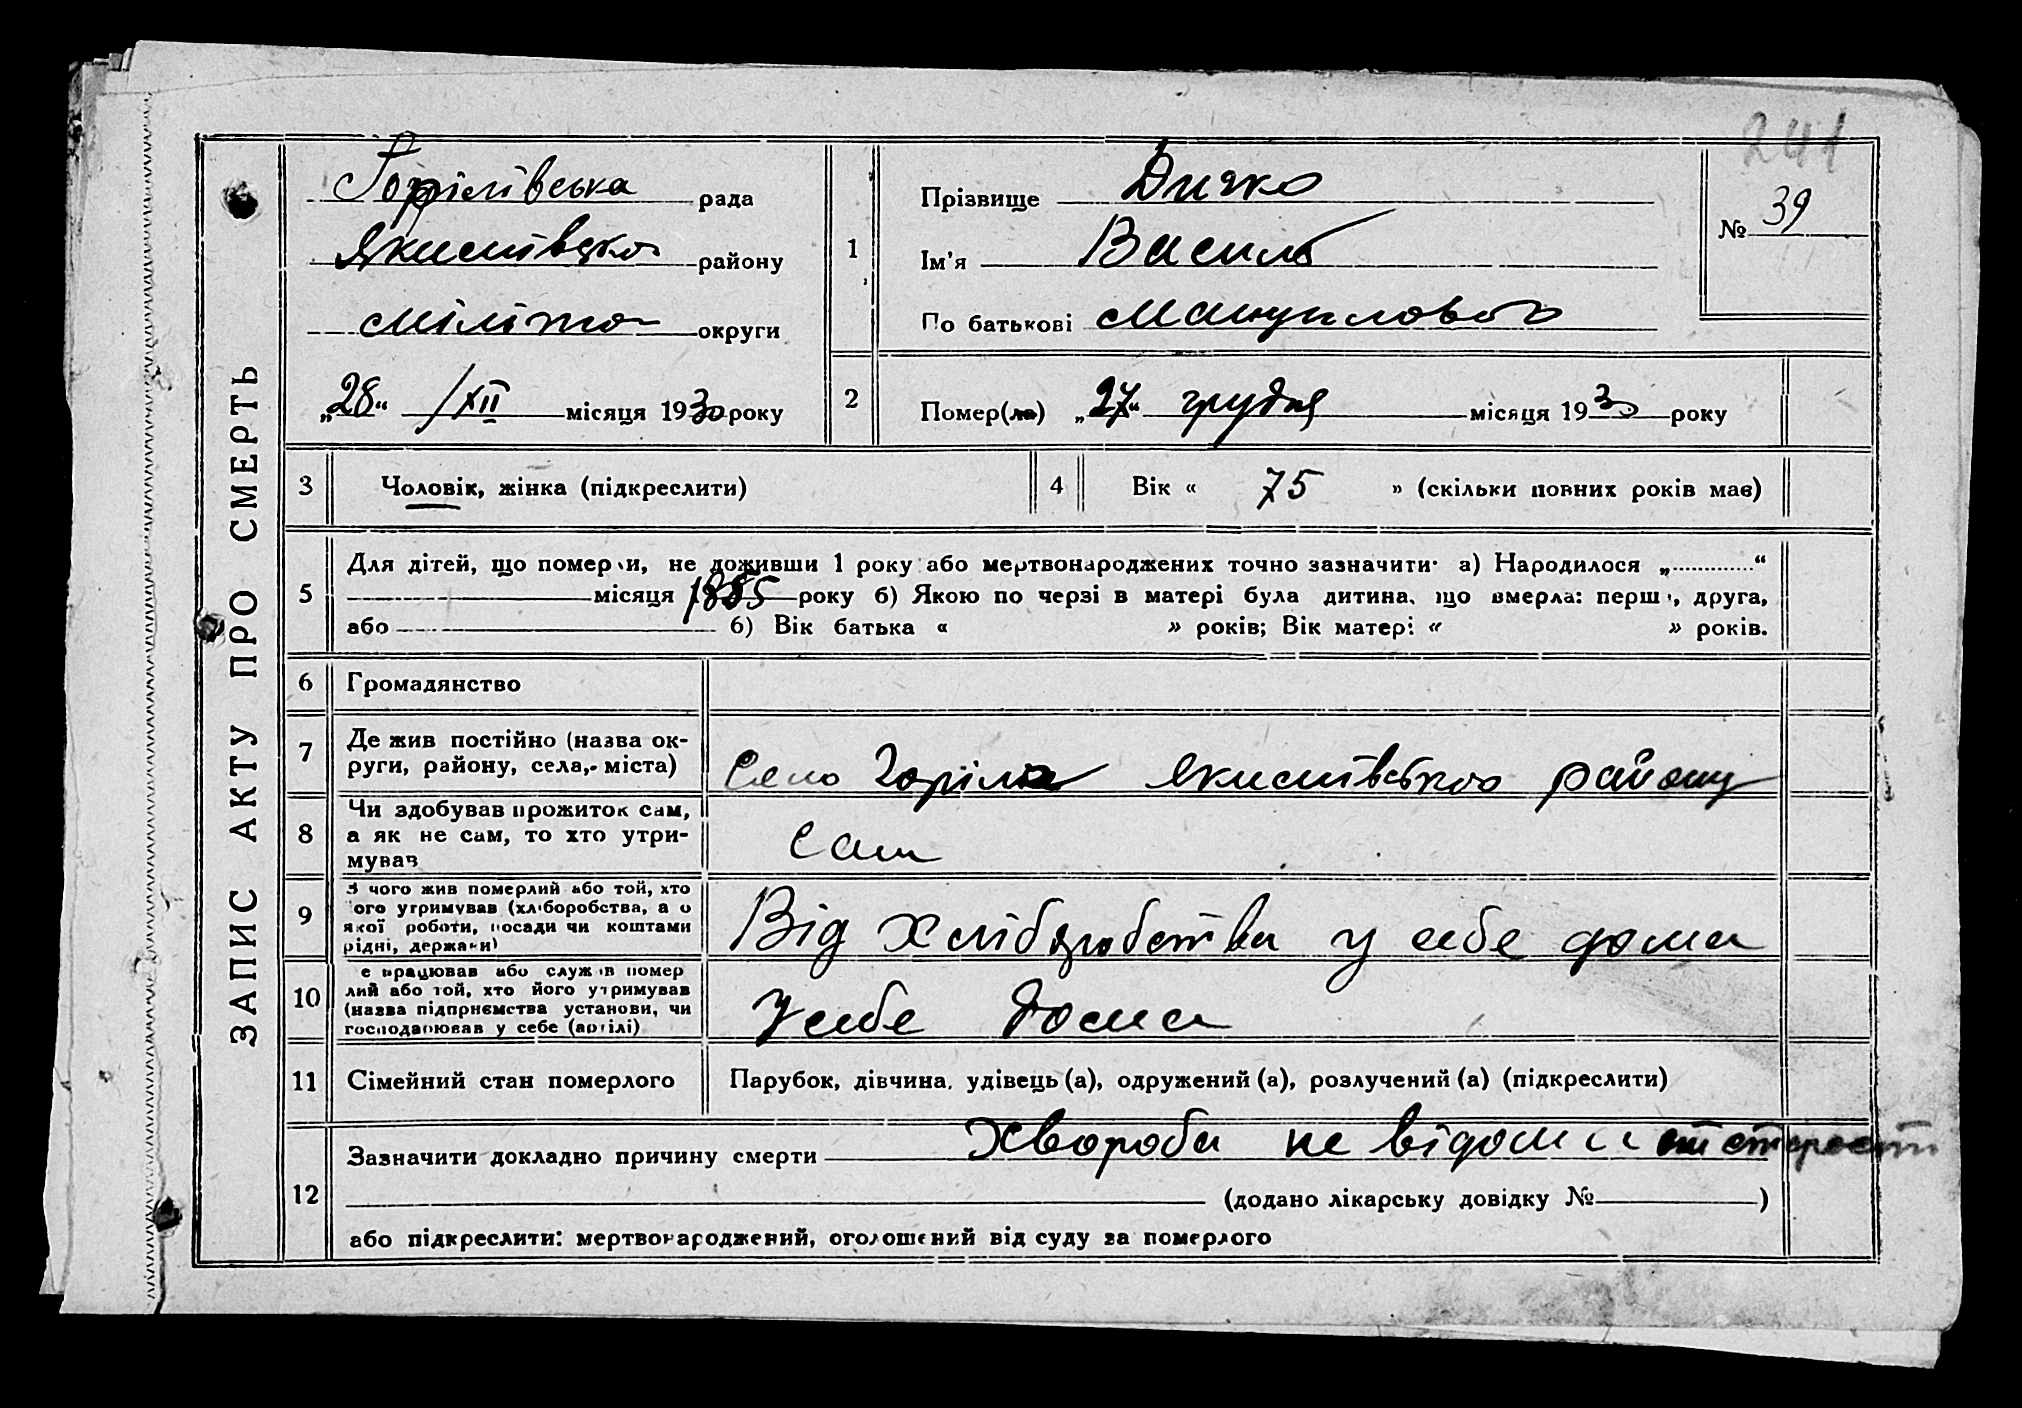 241
ЗАПИС АКТУ ПРО СМЕРТЬ
Горілівська рада
Якимівсько району
Меліто округи
„28“ /XII місяця 1930 року
1
Прізвище Дижко
Ім'я Василь
По батькові Мануилович
№ 39
2
Помер(ла) „27“ грудня місяця 1930 року
3 Чоловік, жінка (підкреслити)
4 Вік « 75 » (скільки повних років має)
5
Для дітей, що померли, не доживши 1 року або мертвонароджених точно зазначити: а) Народилося „ “
місяця 1855 року б) Якою по черзі в матері була дитина, що вмерла: перша, друга,
або б) Вік батька « » років; Вік матері « » років.
6 Громадянство
7 Де жив постійно (назва ок-
руги, району, села, міста)
Село Горіла Якимівського району
8 Чи здобував прожиток сам,
а як не сам, то хто утри-
мував
Сам
9 З чого жив померлий або той, хто
його утримував (хліборобства, а о
якої роботи, посади чи коштами
рідні, держави)
Від Хліборобства у себе дома
10 Де працював або служив помер
лий або той, хто його утримував
(назва підприємства установи, чи
господарював у себе (артілі)
У себе дома
11 Сімейний стан померлого
Парубок, дівчина, удівець (а), одружений (а), розлучений (а) (підкреслити)
12
Зазначити докладно причину смерти Хвороба не відома від старости
(додано лікарську довідку № )
або підкреслити: мертвонароджений, оголошений від суду за померлого